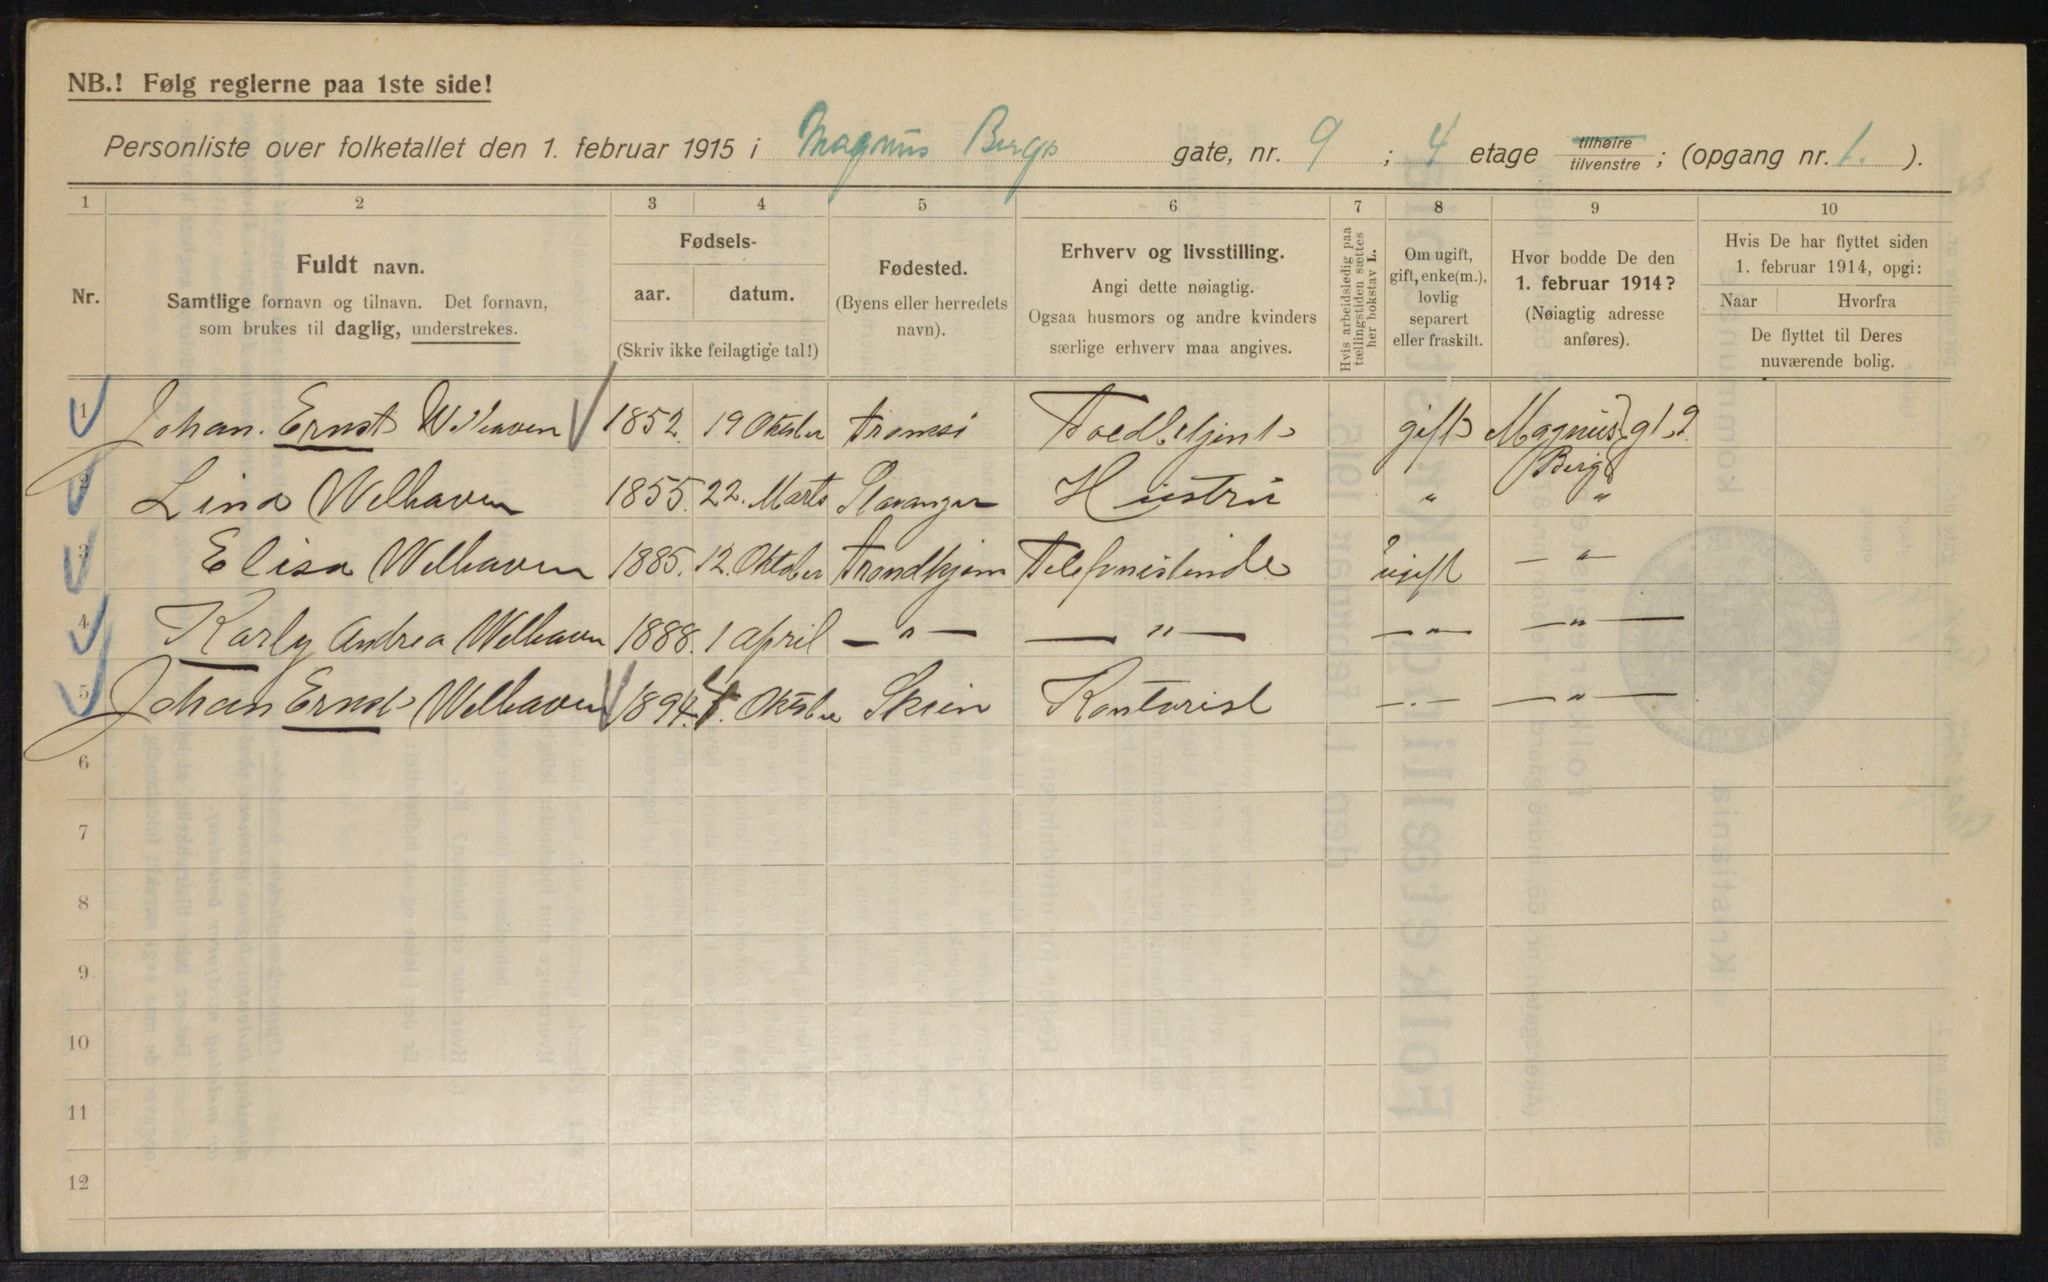 NB.! Følg reglerne paa 1ste side!
Personliste over folketallet den 1. februar 1915 i Magnus Bergs gate, nr. 9 ; 4 etage tilhøire / tilvenstre ; (opgang nr. 1. ).
1 2 3 4 5 6 7 8 9 10
Nr.
Fuldt navn.
Samtlige fornavn og tilnavn. Det fornavn,
som brukes til daglig, understrekes.
Fødsels-
aar. datum.
(Skriv ikke feilagtige tal!)
Fødested.
(Byens eller herredets
navn).
Erhverv og livsstilling.
Angi dette nøiagtig.
Ogsaa husmors og andre kvinders
særlige erhverv maa angives.
Hvis arbeidsledig paa
tællingstiden sættes
her bokstav L.
Om ugift,
gift, enke(m.),
lovlig
separert
eller fraskilt.
Hvor bodde De den
1. februar 1914?
(Nøiagtig adresse
anføres).
Hvis De har flyttet siden
1. februar 1914, opgi:
Naar Hvorfra
De flyttet til Deres
nuværende bolig.
1 Johan Ernst Welhaven 1852. 19 Oktober Tromsö Toldbetjent gift Magnus Bergs gt 9
2 Lina Welhaven 1855. 22. Marts Stavanger Hustru " "
3 Elisa Welhaven 1885. 12. Oktober Trondhjem Telefonistinde ugift — " —
4 Karly Andrea Welhaven 1888. 1 april — " — — " — — " — — " —
5 Johan Ernst Welhaven 1894. 4. Oktober Skien Kontorist — " — — " —
6
7
8
9
10
11
12